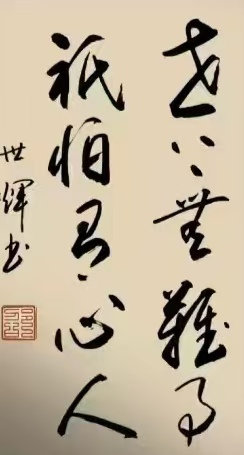 世上無難事
祇怕有心人
世輝书